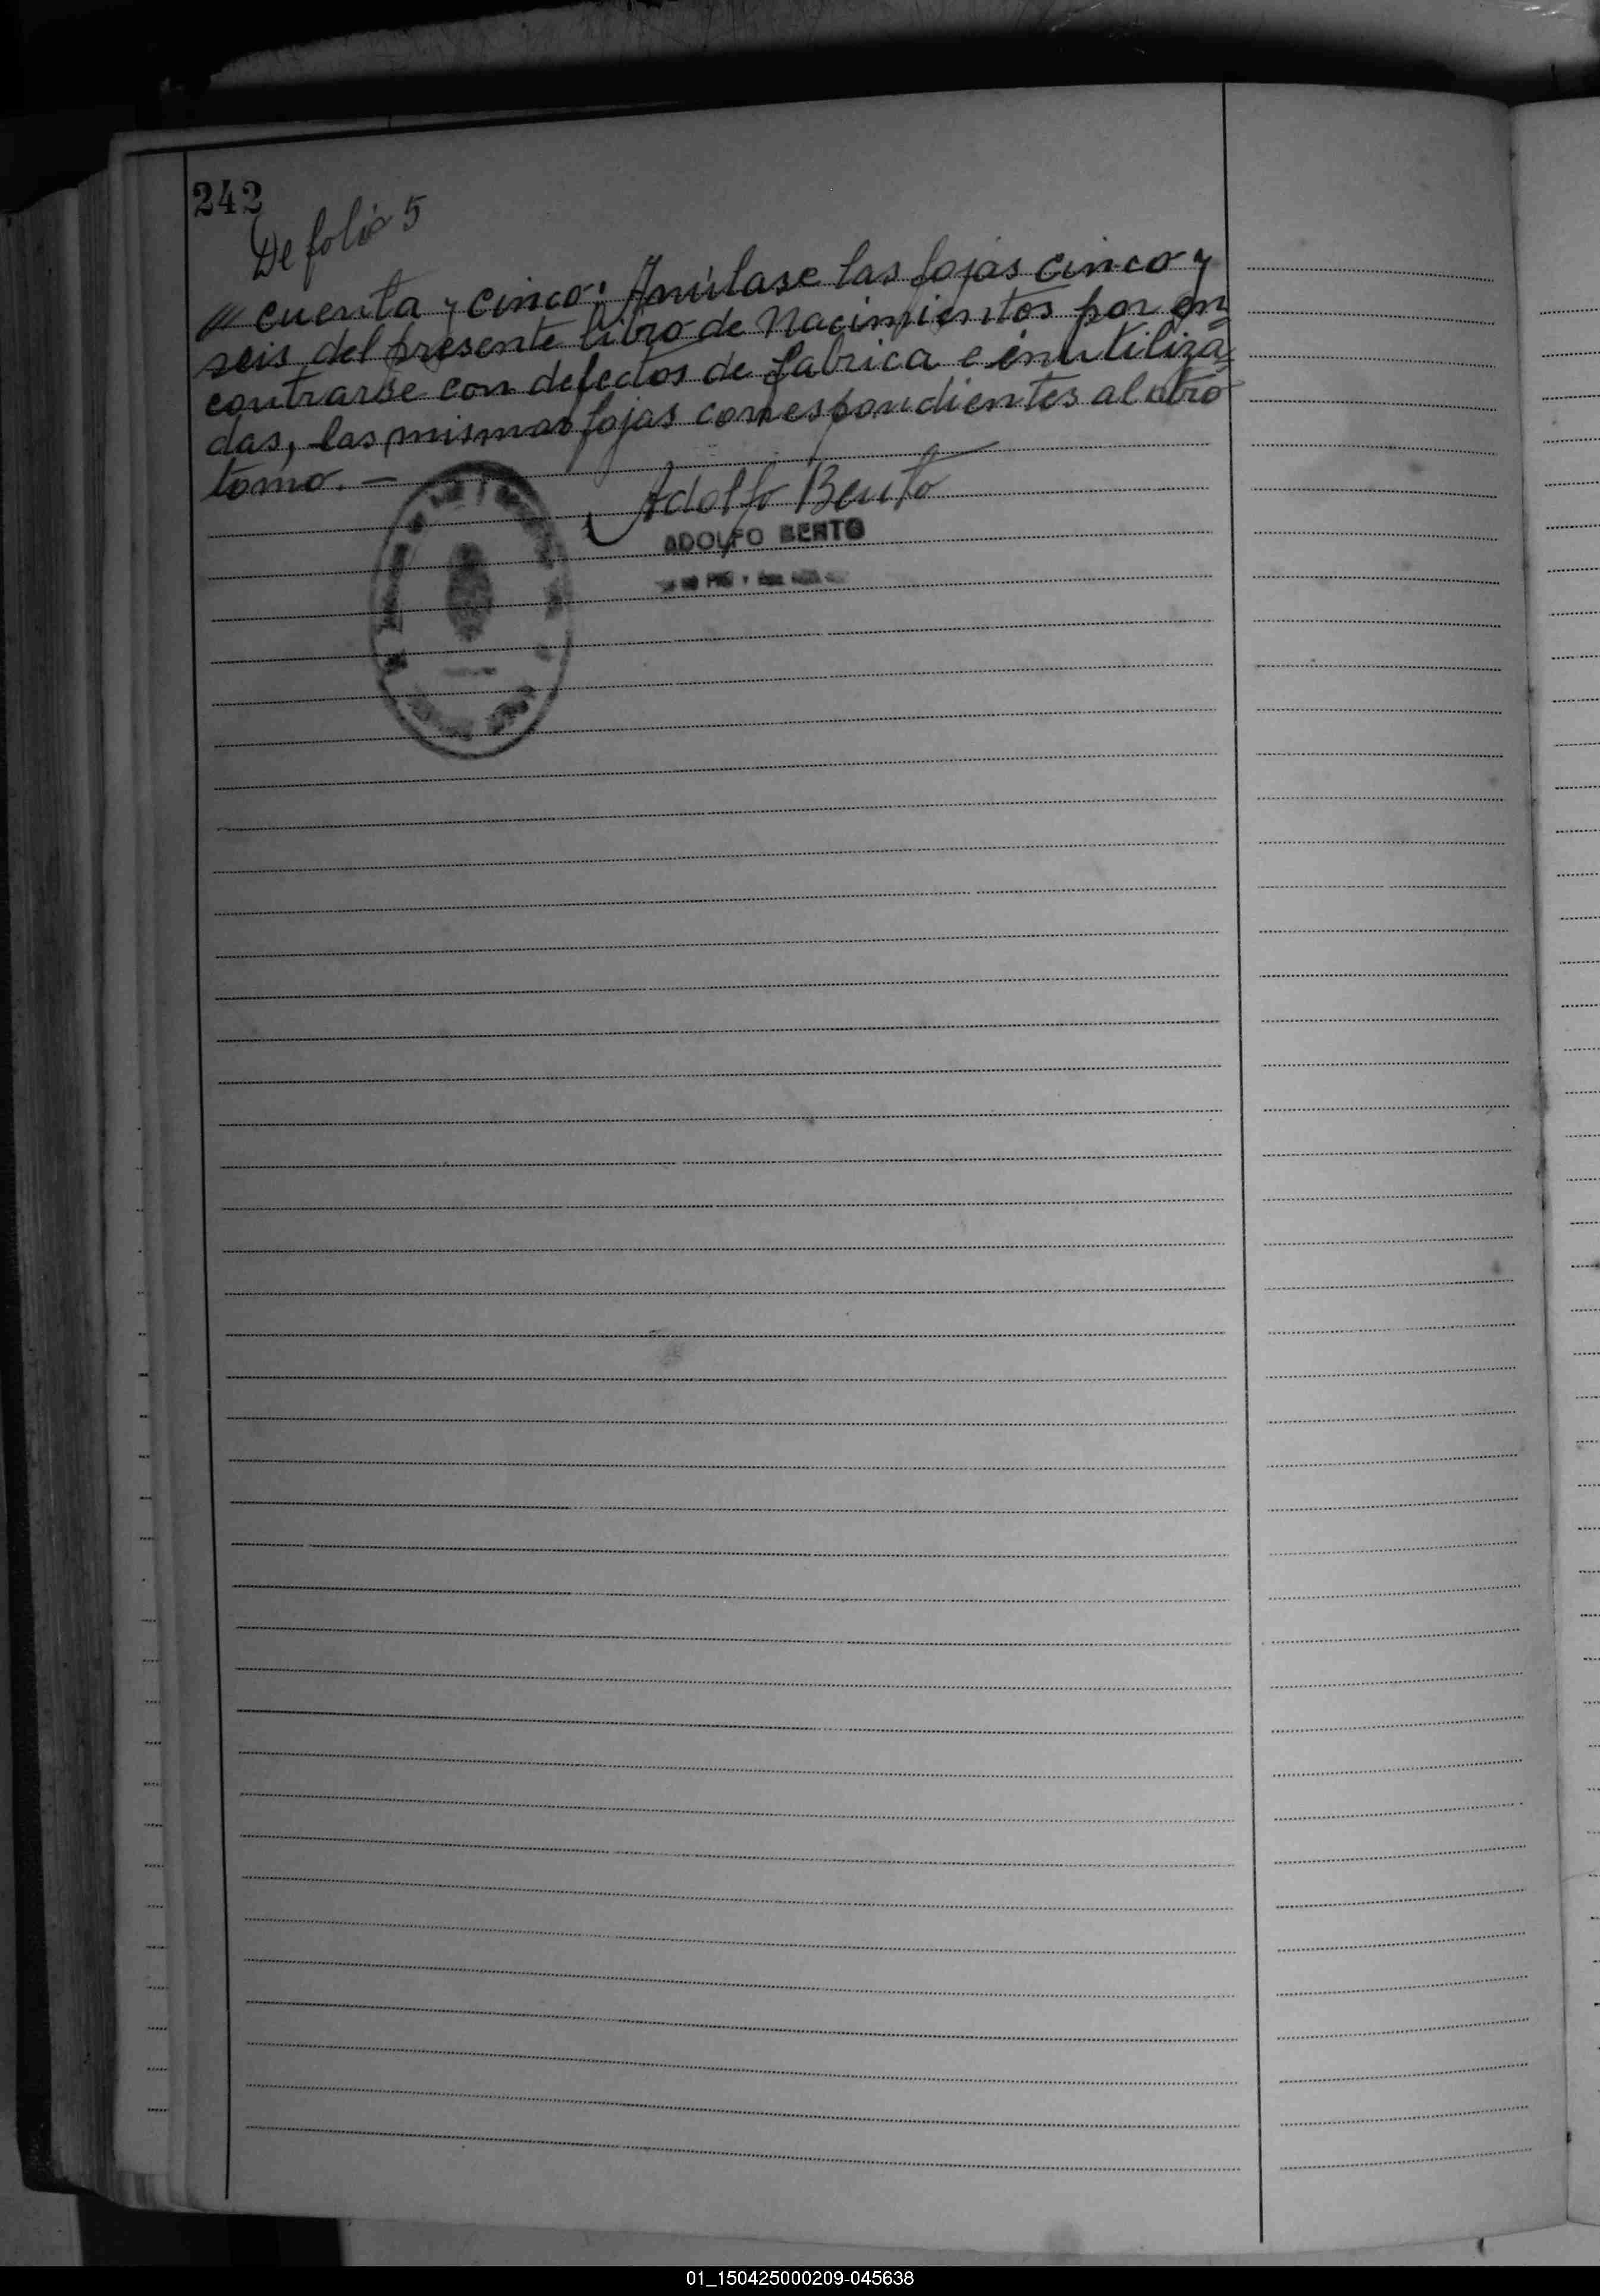 242
De folio 5
/// cuenta y cinco. Anúlase las fojas cinco y
seis del presente libro de Nacimientos por en
contrarse con defectos de fabrica e inutiliza
das, las mismas fojas correspondientes al otro
tomo. —
Adolfo Bento
ADOLFO BENTO
01_150425000209-045638